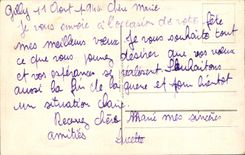 Gilly 11 Aout 1915 Chère Marie
Je vous envoie à l'occasion de votre fête
mes meilleurs vœux. Je vous souhaite tout
ce que vous pouvez désirer que vos vœux
et vos espérances se réalisent. Souhaitons
aussi la fin de la guerre et pour bientôt
un situation claire.
Recevez chère Marie mes sincères
amitiés Lucette